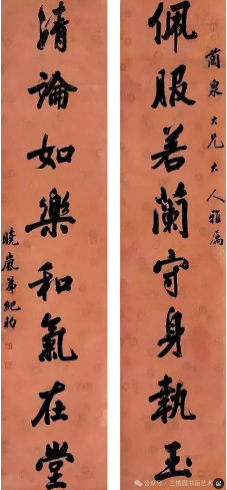 蘭泉大兄大人雅屬
佩服若蘭守身執玉
清論如樂和氣在堂
曉嵐弟紀昀
公众号·三馆园书画艺术